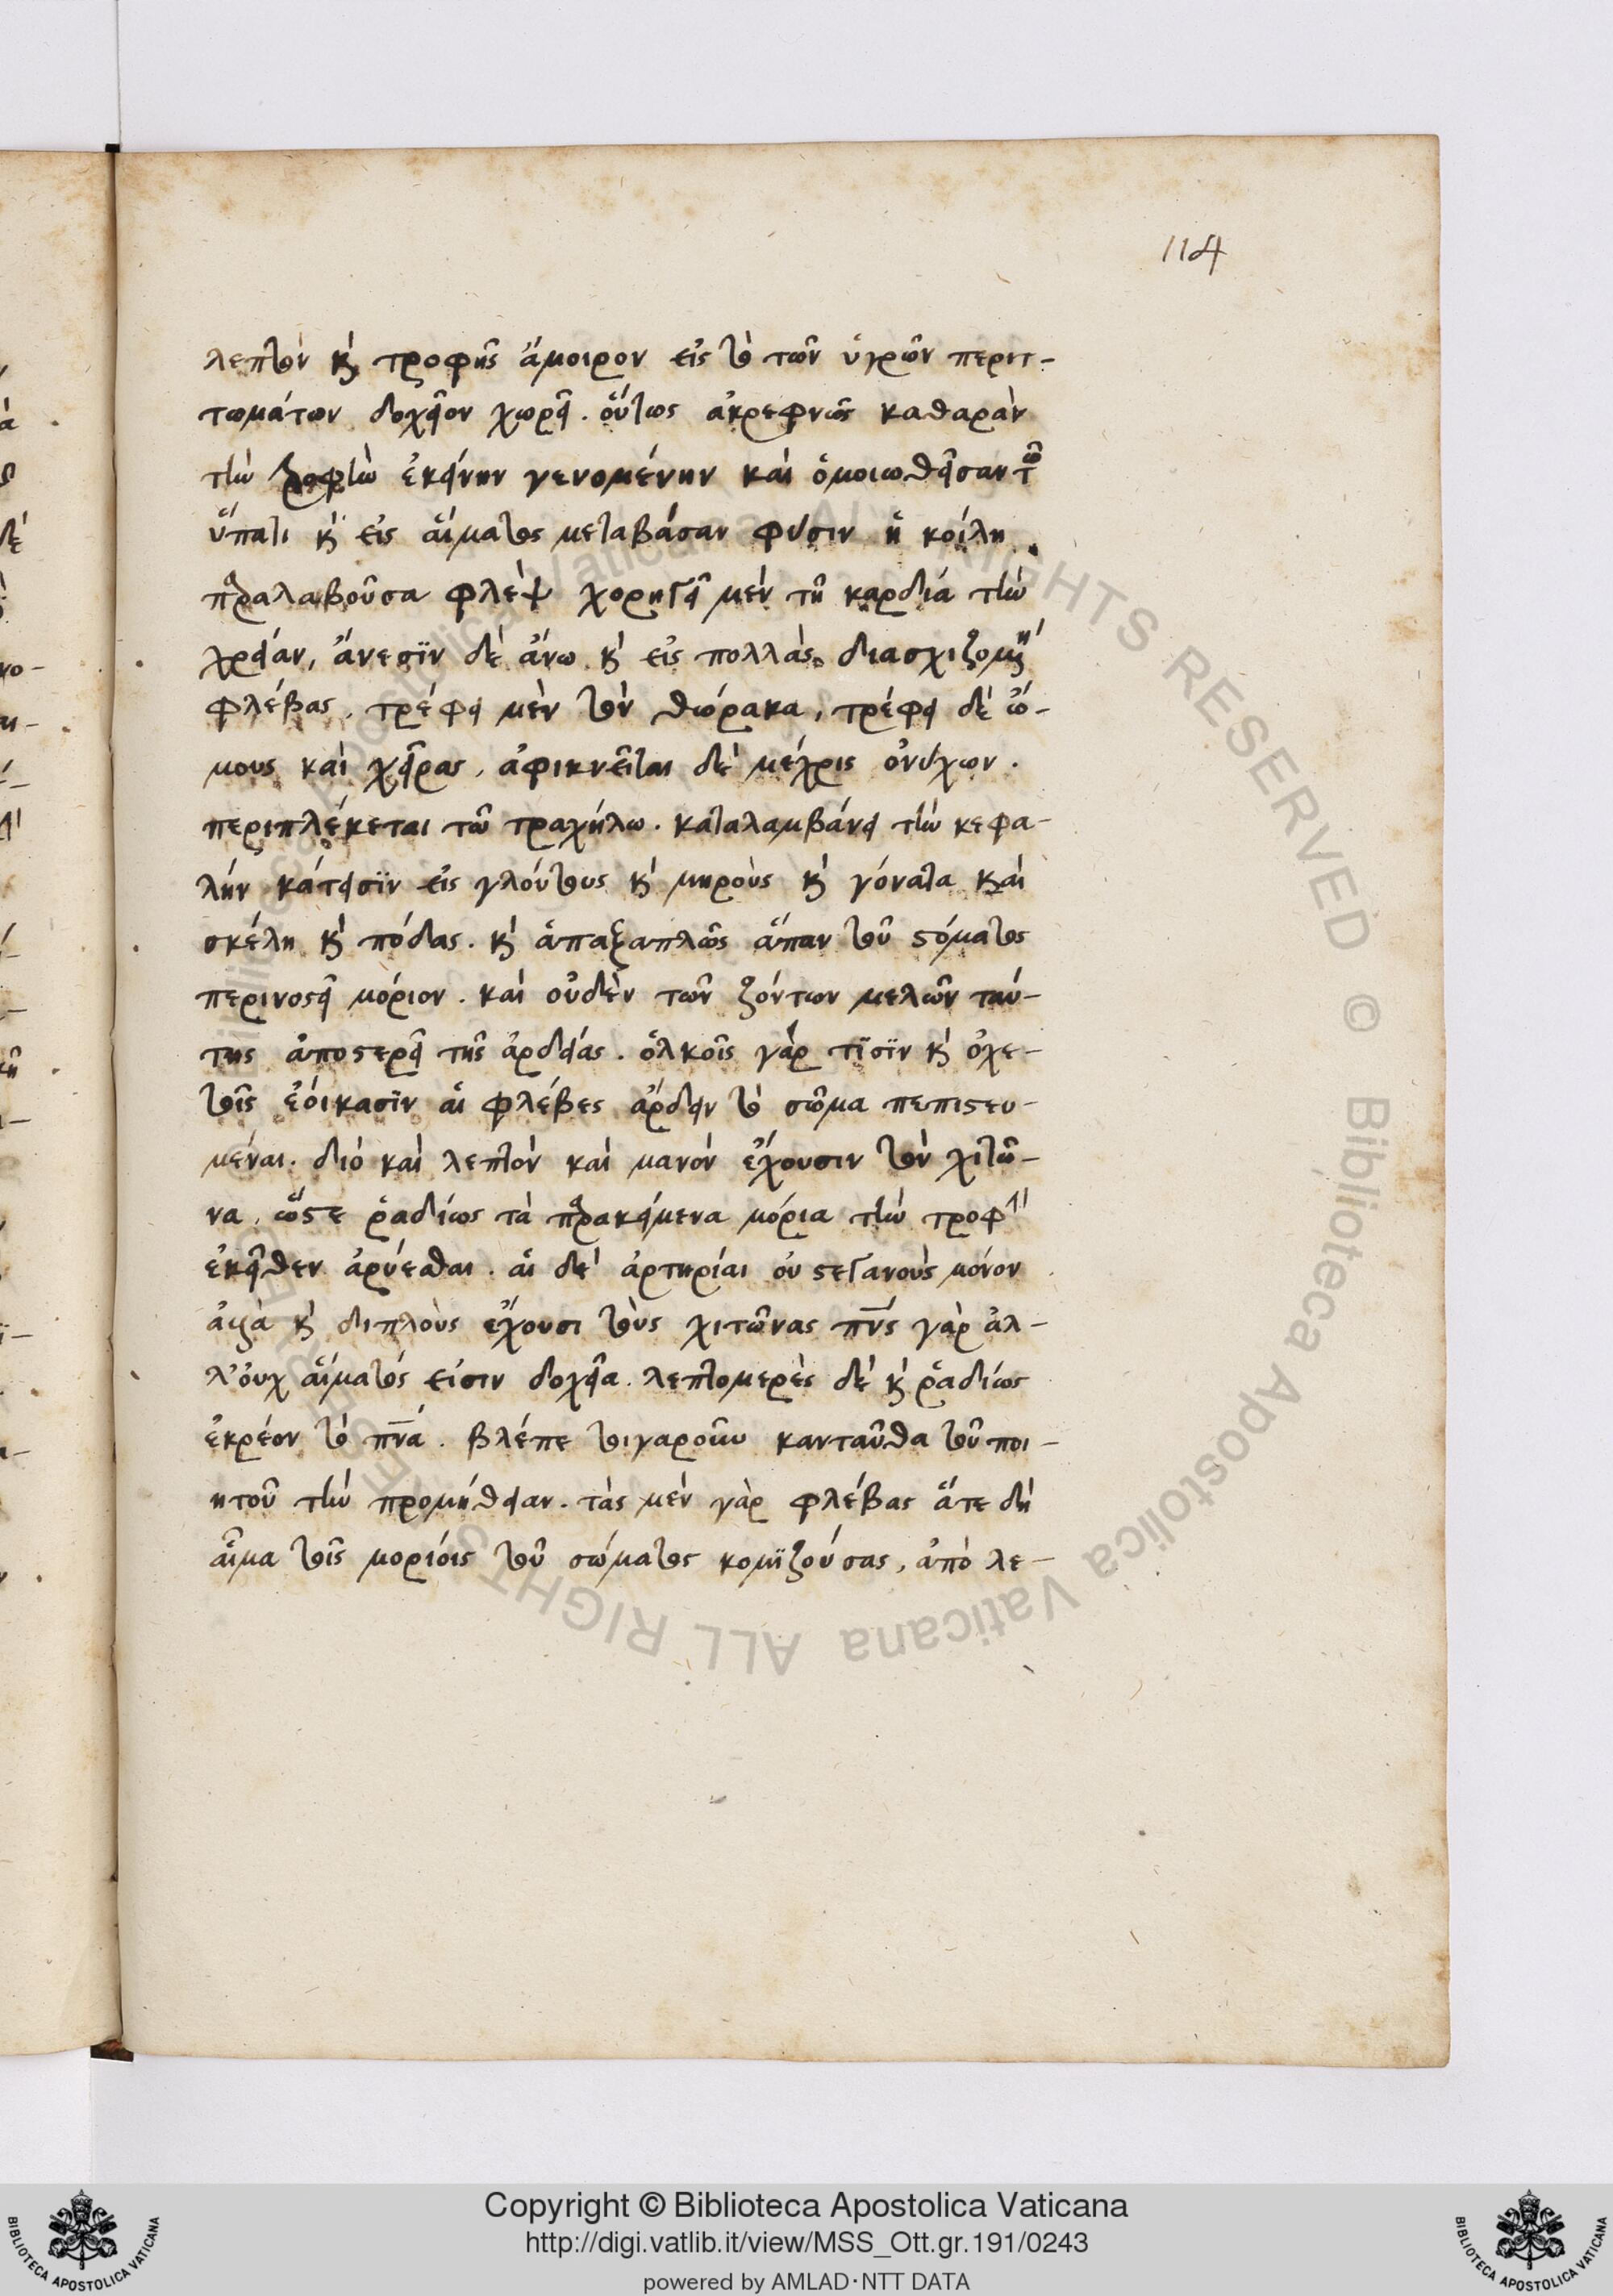 114
λεπτὸν κὶ τροφῆς ἄμοιρον εἰς τὸ τῶν ὑγρῶν περιτ-
τωμάτων δοχεῖον χωρεῖ. οὕτως ἀκρεφνῶς καθαρὰν
τὴν τροφὴν ἐκείνην γενομένην καὶ ὁμοιωθεῖσαν τῶ
ὕπατι κὶ εἰς αἵματος μεταβάσαν φύσιν ἡ κοίλη
παραλαβοῦσα φλὲψ χορηγεῖ μὲν τῆ καρδιά τὴν
χρείαν, ἄνεσϊν δὲ ἄνω κὶ εἰς πολλὰς διασχιζομένη
φλέβας, τρέφει μὲν τὸν θώρακα, τρέφει δὲ ὤ-
μους καὶ χεῖρας, ἀφικνεῖται δὲ μέχρις ὀνύχων.
περιπλέκεται τῶ τραχήλω. καταλαμβάνει τὴν κεφα-
λήν κάτεισϊν εἰς γλούτους κὶ μηροὺς κὶ γόνατα καὶ
σκέλη κὶ πόδας. κὶ ἁπαξαπλῶς ἅπαν τοῦ σόματος
περινοστεῖ μόριον. καὶ οὐδὲν τῶν ζόντων μελῶν ταύ-
της ἀποστερεῖ τῆς ἀρδείας. ὁλκοῖς γάρ τϊσϊν κὶ ὀχε-
τοῖς ἐοίκασϊν αἱ φλέβες ἄρδειν τὸ σῶμα πεπιστευ-
μέναι. διό καὶ λεπτὸν καὶ μανόν ἔχουσιν τὸν χιτῶ-
να, ὥστε ῥαδίως τὰ παρακείμενα μόρια τὴν τροφὴν
ἐκεῖθεν ἀρύεσθαι. αἱ δὲ ἀρτηρίαι οὐ στεγανοὺς μόνον
ἀλλὰ κὶ διπλοὺς ἔχουσι τοὺς χιτῶνας πνς γὰρ ἀλ-
λ' οὐχ αἵματός εἰσιν δοχεῖα. λεπτομερὲς δὲ κὶ ῥαδίως
ἐκρέον τὸ πνά. βλέπε τοιγαροῦν κανταῦθα τοῦ ποι-
ητοῦ τὴν προμήθειαν. τὰς μὲν γὰρ φλέβας ἅτε δὴ
αἷμα τοῖς μορίοις τοῦ σώματος κομϊζούσας, ἀπὸ λε-
Copyright © Biblioteca Apostolica Vaticana
http://digi.vatlib.it/view/MSS_Ott.gr.191/0243
powered by AMLAD·NTT DATA